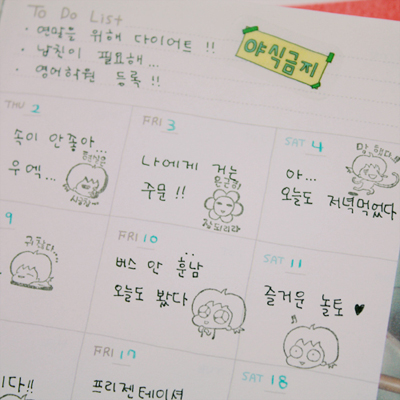 To Do List
· 연말을 위해 다이어트 !!
· 남친이 필요해...
· 영어학원 등록 !!
야식금지
THU 2
속이 안좋아...
우엑...
FRI 3
나에게 거는
주문 !!
잘되리라
SAT 4
아...
오늘도 저녁먹었다
9
귀찮다...
FRI 10
버스 안 훈남
오늘도 봤다
SAT 11
즐거운 놀토 ♥
이다!!
FRI 17
프리젠테이션
SAT 18